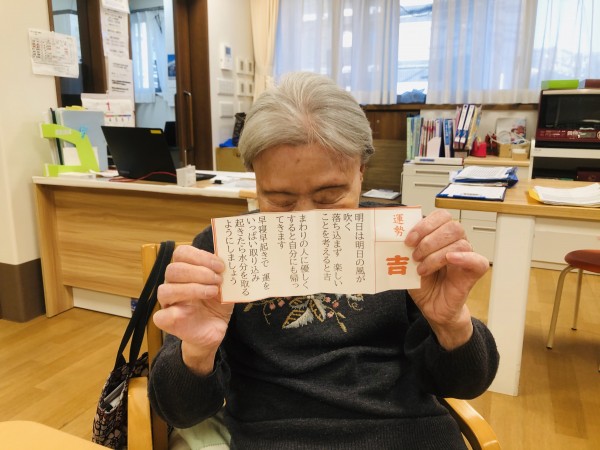 運勢
吉
明日は明日の風が
吹く
落ち込まず 楽しい
ことを考えると吉
まわりの人に優しく
すると自分にも帰っ
てきます
早寝早起きで 運を
いっぱい取り込み
起きたら水分を取る
ようにしましょう